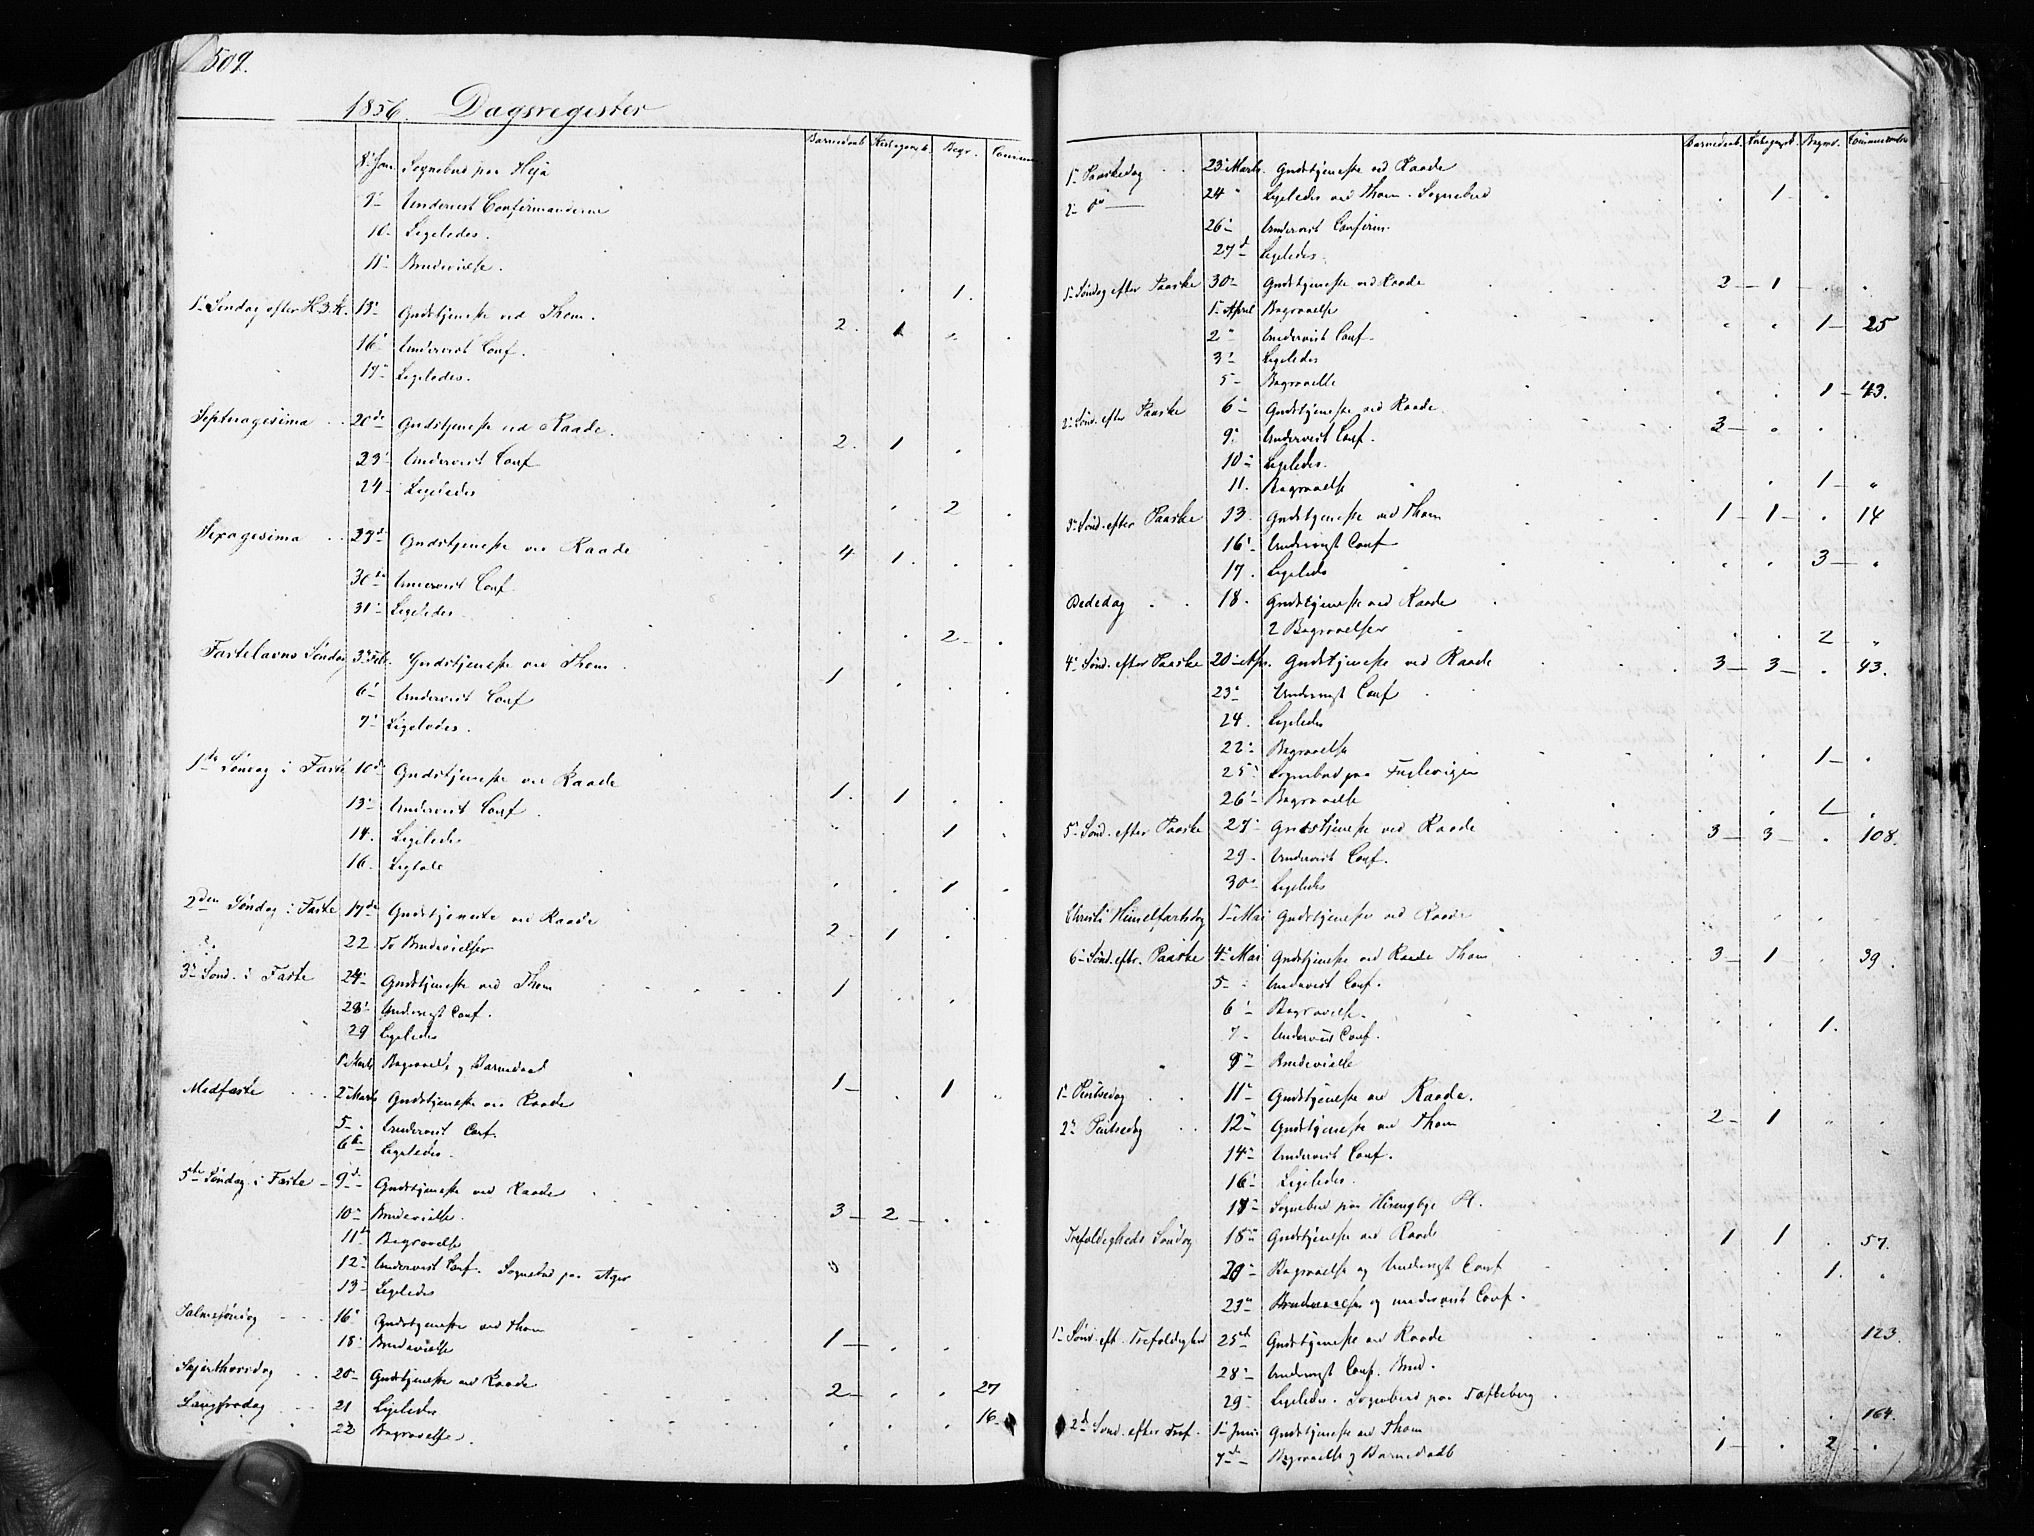 509.
1856. Dagsregister
Barnedaab Kirkegangsk. Begr. Commun
8. Jan. Sognebud paa Heja
9- Underviist Confirmanderne
10- Ligeledes.
11- Brudevielse.
1.
1. Søndag efter H.3.K. 13- Gudstjeneste ved Thom. 2. 1
16- Underviist Conf.
17- Ligeledes.
Septuagesima 20de Gudstjeneste ved Raade. 2. 1
23- Underviist Conf
24- Ligeledes
2
Sexagesima 27d Gudstjeneste ved Raade 4 1.
30te Underviist Conf.
31- Ligeledes.
2
Fastelavns Søndag 3. Feb. Gudstjeneste ved Thom. 1
6- Underviist Conf
7- Ligeledes.
1te Søndag i Faste 10d Gudstjeneste ved Raade 1. 1
13- Underviist Conf.
14. Ligeledes 1
16. Ligtale
1
2den Søndag i Faste 17de Gudstjeneste ved Raade 2. 1
22 To Brudevielser
3- Sønd. i Faste 24- Gudstjeneste ved Thom 1
28- Undervist Conf.
29 Ligeledes
1. Marts Begravelse og Barnedaab 1- 1
Midfaste 2- Marts Gudstjeneste ved Raade
5- Underviist Conf.
6te Ligeledes.
5te Søndag i Faste 9d Gudstjeneste ved Raade 3- 2-
10- Brudevielse.
11te Begravelse
12- Underviist Conf. Sognebud paa Ager
13- Ligeledes
Palmesøndag 16- Gudstjeneste ved Thom 1-
18- Brudevielse
Skjærthorsdag 20- Gudstjeneste ved Raade 2- 27
Langfredag 21 Ligeledes 16-
22 Begravelse.
Barnedaab. Kirkegangsk. Begrav. Communicanter
1- Paaskedag 23- Marts. Gudstjeneste ved Raade
2- do 24 " Ligeledes ved Thom. Sognebud 1
26- Underviist Confirm.
27d Ligeledes.
1- Søndag efter Paaske 30- Gudstjeneste ved Raade 2- 1
1- April Begravelse 1- 25
2 " Underviist Conf.
3- Ligeledes
5- Begravelse 1- 43.
2- Sønd. efter Paaske 6- Gudstjeneste ved Raade. 3-
9- Underviist Conf.
10- Ligeledes.
11. Begravelse 1- "
3- Sønd. efter Paaske 13. Gudstjeneste ved Thom 1- 1- 14
16- Undervist Conf
17. Ligeledes 3- "
Bededag 18. Gudstjeneste ved Raade
2 Begravelser 2 "
4- Sønd. efter Paaske 20- Apr. Gudstjeneste ved Raade 3- 3- 43.
23- Undervist Conf
24. Ligeledes
22- Begravelse 1-
25- Sognebud paa Fuglevigen
26- Begravelse 1-
5- Sønd. efter Paaske 27- Gudstjeneste ved Raade 3- 3- 108.
29- Underviist Conf.
30- Ligeledes
Christi Himmelfartsdag 1- Mai Gudstjeneste ved Raade
6- Sønd. eftr. Paaske 4- Mai Gudstjeneste ved Thom 3- 1- 39.
5- Underviist Conf.
6- Begravelse. 1.
7- Underviist Conf.
9- Brudevielse
1- Pintsedag 11- Gudstjeneste ved Raade.
2- Pintsedag 12- Gudstjeneste ved Thom 2- 1
14- Underviist Conf.
16- Ligeledes.
Sognebud paa
Trefoldigheds Søndag 18- Gudstjeneste ved Raade 1 1 57.
20- Begravelse og Undervist Conf 1. "
23- Brudevielse og underviist Conf.
1- Sønd. eft. Trefoldighed 25d Gudstjeneste ved Raade 123.
28- Undervist Conf.
29- Ligeledes. Sognebud paa
2d Sønd. efter Tref. 1- Juni Gudstjeneste ved Thom 164.
7d- Begravelse og Barnedaab 1- 2-